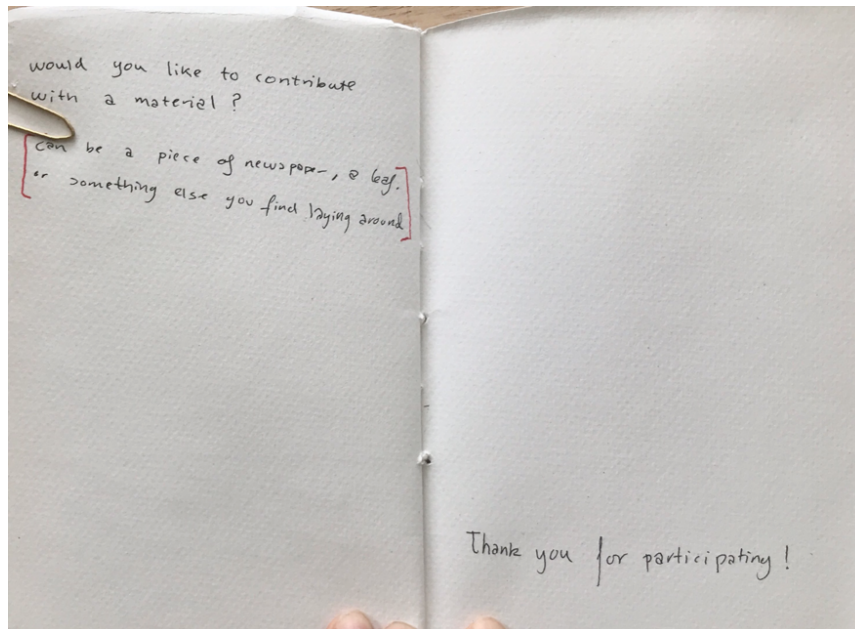 would you like to contribute
with a material?
can be a piece of newspaper, a leaf.
or something else you find laying around
Thank you for participating!